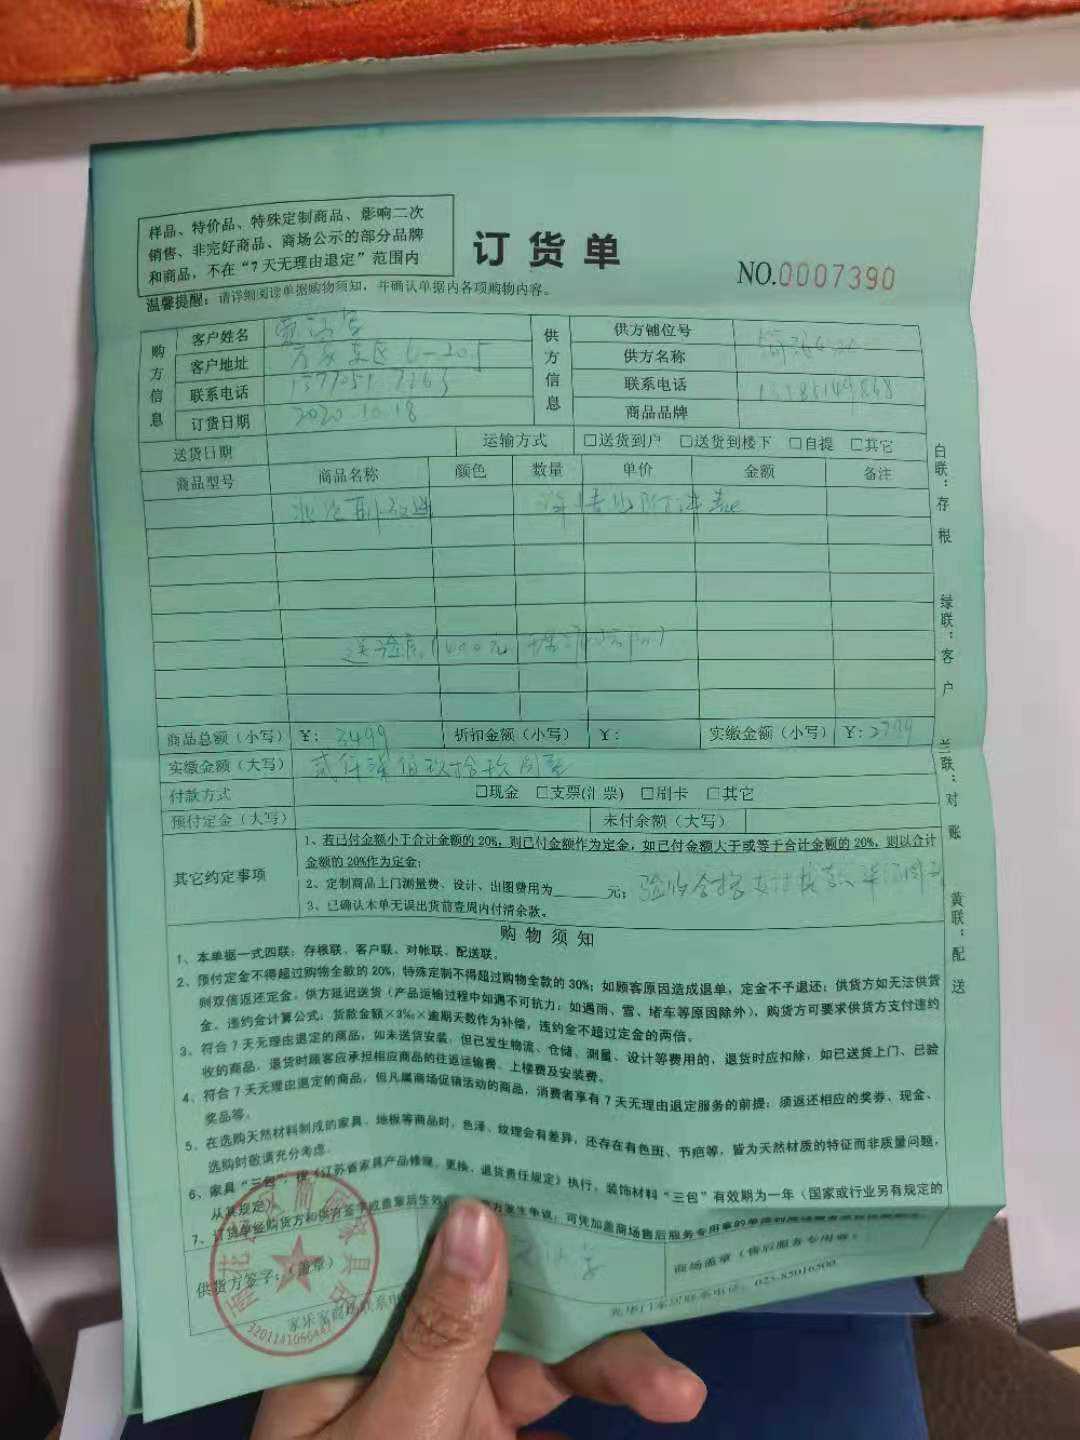 样品、特价品、特殊定制商品、影响二次
销售、非完好商品、商场公示的部分品牌
和商品，不在“7天无理由退定”范围内
订货单
NO.0007390
温馨提醒：请详细阅读单据购物须知，并确认单据内各项购物内容。
购方信息
客户姓名
客户地址 6-205
联系电话
订货日期 2020.10.18
供方信息
供方铺位号
供方名称
联系电话
商品品牌
送货日期 运输方式 □送货到户 □送货到楼下 □自提 □其它
商品型号 商品名称 颜色 数量 单价 金额 备注
商品总额（小写） ¥: 3499 折扣金额（小写） ¥: 实缴金额（小写） ¥: 2799
实缴金额（大写） 贰仟柒佰玖拾玖圆整
付款方式 □现金 □支票(汇票) □刷卡 □其它
预付定金（大写） 未付余额（大写）
其它约定事项
1、若已付金额小于合计金额的20%，则已付金额作为定金，如已付金额大于或等于合计金额的20%，则以合计
金额的20%作为定金；
2、定制商品上门测量费、设计、出图费用为______元； 验收合格
3、已确认本单无误出货前壹周内付清余款。
购物须知
1、本单据一式四联：存根联、客户联、对帐联、配送联。
2、预付定金不得超过购物全款的20%，特殊定制不得超过购物全款的30%；如顾客原因造成退单，定金不予退还；供货方如无法供货
则双倍返还定金。供方延迟送货（产品运输过程中如遇不可抗力：如遇雨、雪、堵车等原因除外），购货方可要求供货方支付违约
金。违约金计算公式：货款金额×3‰×逾期天数作为补偿，违约金不超过定金的两倍。
3、符合7天无理由退定的商品，如未送货安装，但已发生物流、仓储、测量、设计等费用的，退货时应扣除，如已送货上门、已验
收的商品，退货时顾客应承担相应商品的往返运输费、上楼费及安装费。
4、符合7天无理由退定的商品，但凡属商场促销活动的商品，消费者享有7天无理由退定服务的前提：须返还相应的奖券、现金、
奖品等。
5、在选购天然材料制成的家具、地板等商品时，色泽、纹理会有差异，还存在有色斑、节疤等，皆为天然材质的特征而非质量问题，
选购时敬请充分考虑。
6、家具“三包”按《江苏省家具产品修理、更换、退货责任规定》执行，装饰材料“三包”有效期为一年（国家或行业另有规定的
从其规定）
7、订货单经购货方和供方签字或盖章后生效 方发生争议，可凭加盖商场售后服务专用章的单据到商场
供货方签字：（盖章）
商场盖章（售后服务专用章）
光华门家居联系电话：025-85016500
白联：存根
绿联：客户
兰联：对账
黄联：配送